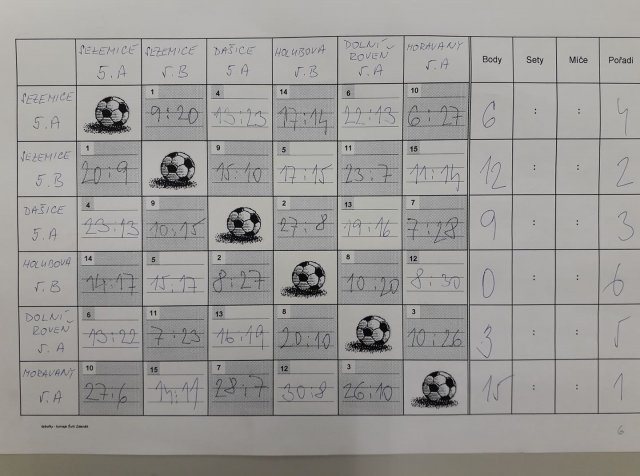 SEZEMICE SEZEMICE DAŠICE HOLUBOVA DOLNÍ MORAVANY
ROVEŇ
5.A 5.B 5.A 5.B 5.A 5.A Body Sety Míče Pořadí
1 4 14 6 10
SEZEMICE 9:20 13:23 17:14 22:13 6:27 6 : : 4
5.A
1 9 5 11 15
SEZEMICE 20:9 15:10 17:15 23:7 11:14 12 : : 2
5.B
4 9 2 13 7
DAŠICE 23:13 10:15 27:8 19:16 7:28 9 : : 3
5.A
14 5 2 8 12
HOLUBOVA 14:17 15:17 8:27 10:20 8:30 0 : : 6
5.B
6 11 13 8 3
DOLNÍ
ROVEŇ 13:22 7:23 16:19 20:10 10:26 3 : : 5
5.A
10 15 7 12 3
MORAVANY 27:6 14:11 28:7 30:8 26:10 15 : : 1
5.A
6